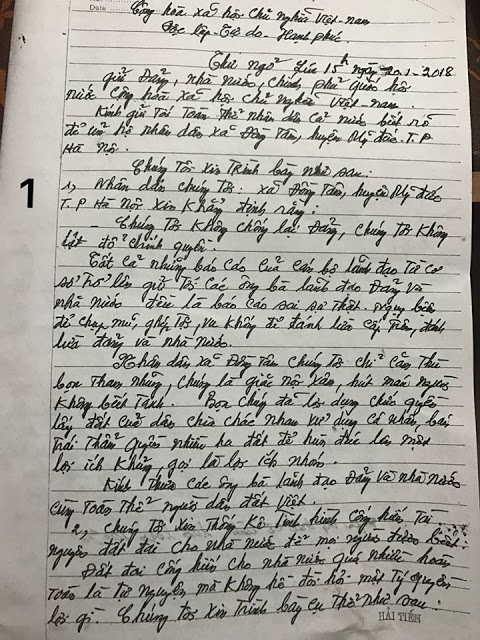 Date :
Cộng hòa xã hội chủ nghĩa Việt-nam
Độc lập - Tự do - Hạnh phúc.
Thư ngỏ Lúc 15h ngày 20-1-2018
gửi Đảng, nhà nước, chính phủ Quốc hội
nước Cộng hòa xã hội chủ nghĩa Việt nam.
Kính gửi tới toàn thể nhân dân cả nước biết rõ
để ủng hộ nhân dân xã Đồng Tâm, huyện Mỹ đức. T.P
Hà Nội.
Chúng tôi xin trình bày như sau:
1
1, Nhân dân chúng tôi: xã Đồng Tâm, huyện Mỹ đức
T.P Hà Nội xin khẳng định rằng:
- Chúng tôi không chống lại Đảng, chúng tôi không
lật đổ chính quyền.
Tất cả những báo cáo của cán bộ lãnh đạo từ cơ
sở trở lên gửi tới các ông bà lãnh đạo Đảng và
nhà nước đều là báo cáo sai sự thật. Ngụy biện
để chụp mũ, ghép tội, vu khống để đánh lừa cấp trên, đánh
lừa đảng và nhà nước.
Nhân dân xã Đồng Tâm chúng tôi chỉ căm thù
bọn tham nhũng, chúng là giặc nội xâm, hút máu người
không biết tanh. Bọn chúng đã lợi dụng chức quyền
lấy đất của dân chia chác nhau sử dụng cá nhân, bán
trái thẩm quyền nhiều ha đất để làm một
lợi ích khủng, gọi là lợi ích nhóm.
Kính thưa các ông bà lãnh đạo Đảng và nhà nước
cùng toàn thể người dân đất Việt.
2, chúng tôi xin thống kê tình hình cống hiến tài
nguyên đất đai cho nhà nước để mọi người được biết.
Đất đai cống hiến cho nhà nước quá nhiều hoàn
toàn là tự nguyện mà không hề đòi hỏi một tý quyền
lợi gì. Chúng tôi xin trình bày cụ thể như sau:
HẢI TIẾN